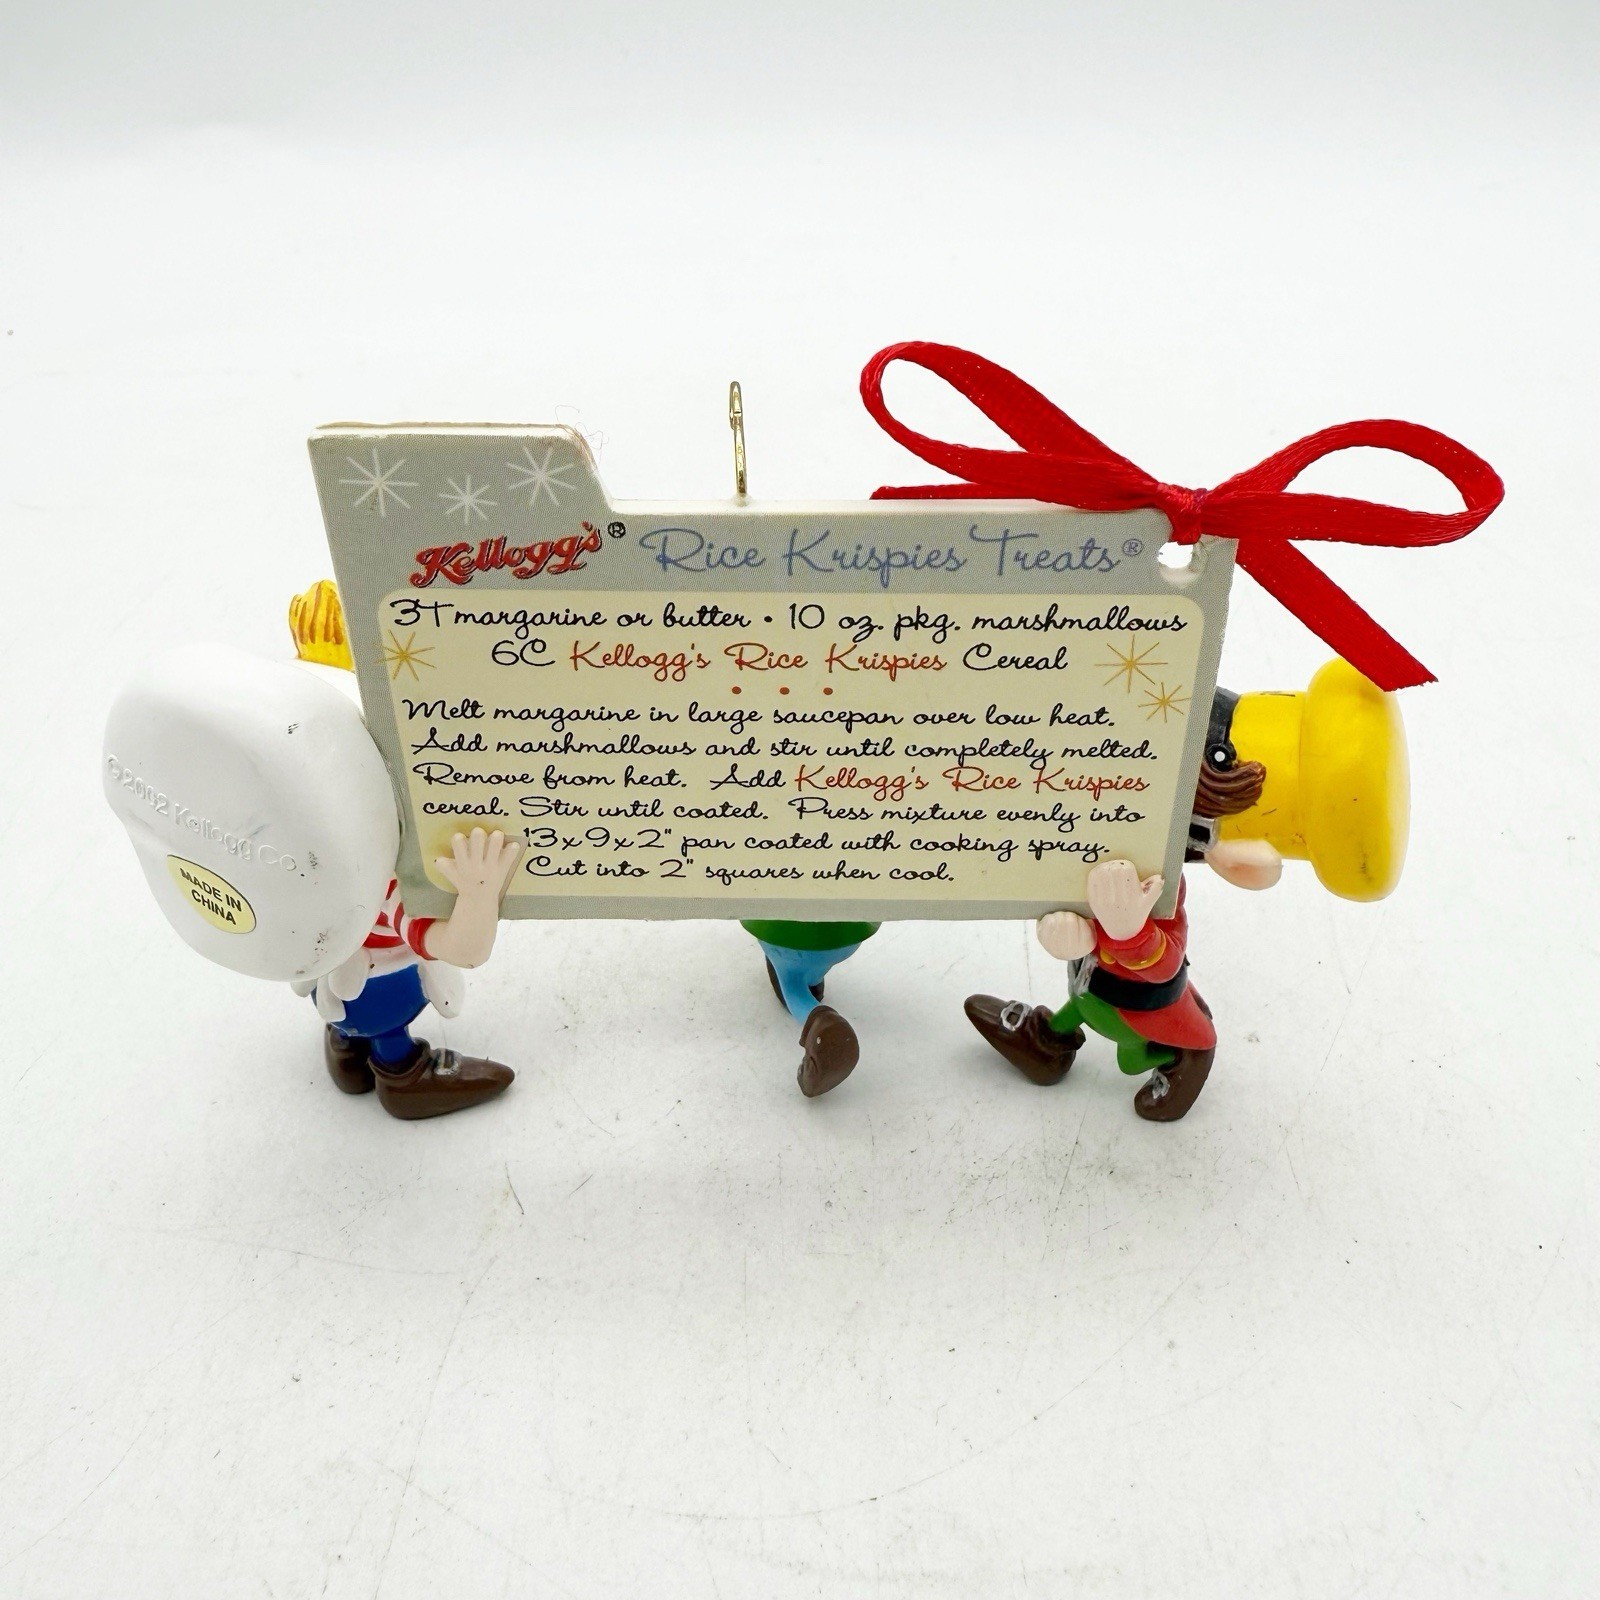 Kellogg's® Rice Krispies Treats®
3T margarine or butter • 10 oz. pkg. marshmallows
6C Kellogg's Rice Krispies Cereal
• • •
Melt margarine in large saucepan over low heat.
Add marshmallows and stir until completely melted.
Remove from heat. Add Kellogg's Rice Krispies
cereal. Stir until coated. Press mixture evenly into
13x9x2" pan coated with cooking spray.
Cut into 2" squares when cool.
©2002 Kellogg Co.
MADE IN
CHINA